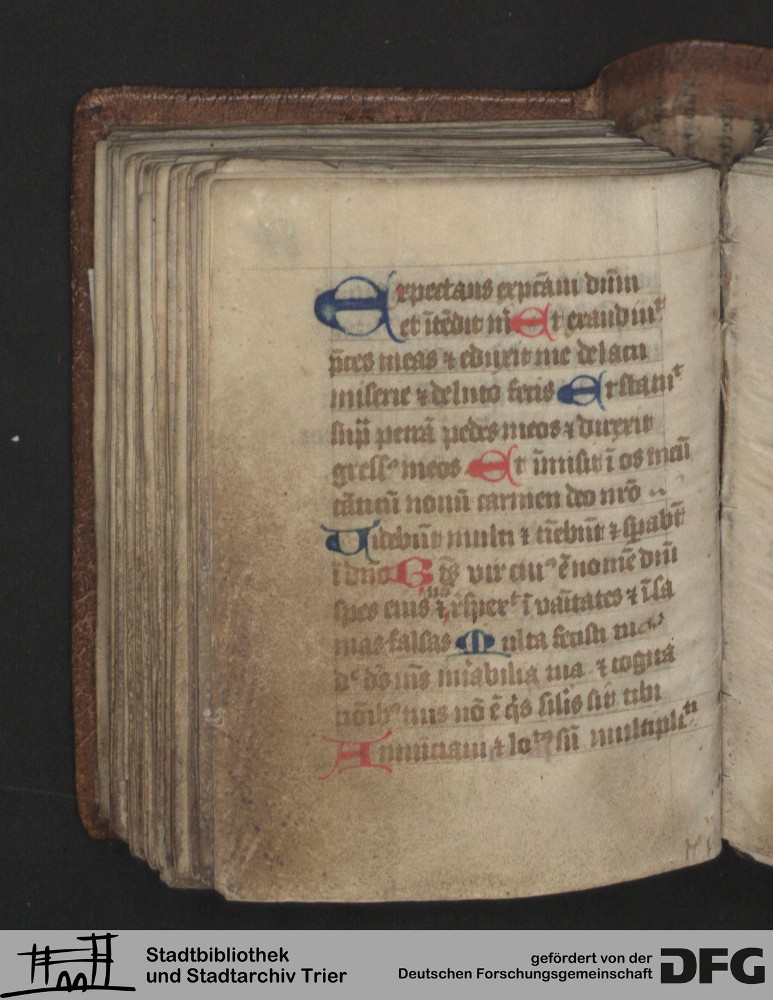 Expectans expcāui dūm
et ītēdit m̄ Et exaudiuit
p̄ces meas ⁊ eduxit me de lacu
miserie ⁊ de luto fecis Et statuit
sup̄ petrā pedes meos ⁊ direxit
gress⁹ meos Et īmisit ī os meū
cāticū nouū carmen deo nr̄o
Uidebūt multi ⁊ timebūt ⁊ sp̄abūt
ī dn̄o B̄tus vir cui⁹ ē nomē dn̄i
spes eius ⁊ n̄ respexit ī vaītates ⁊ īsa
nias falsas Multa fecisti
d̄s ms̄ mi᷑abilia tua ⁊ cogita
nō ē q̄s silis sit tibi
Annunciaui ⁊ locut⁹ sū multiplicati
Stadtbibliothek
und Stadtarchiv Trier
gefördert von der
Deutschen Forschungsgemeinschaft DFG